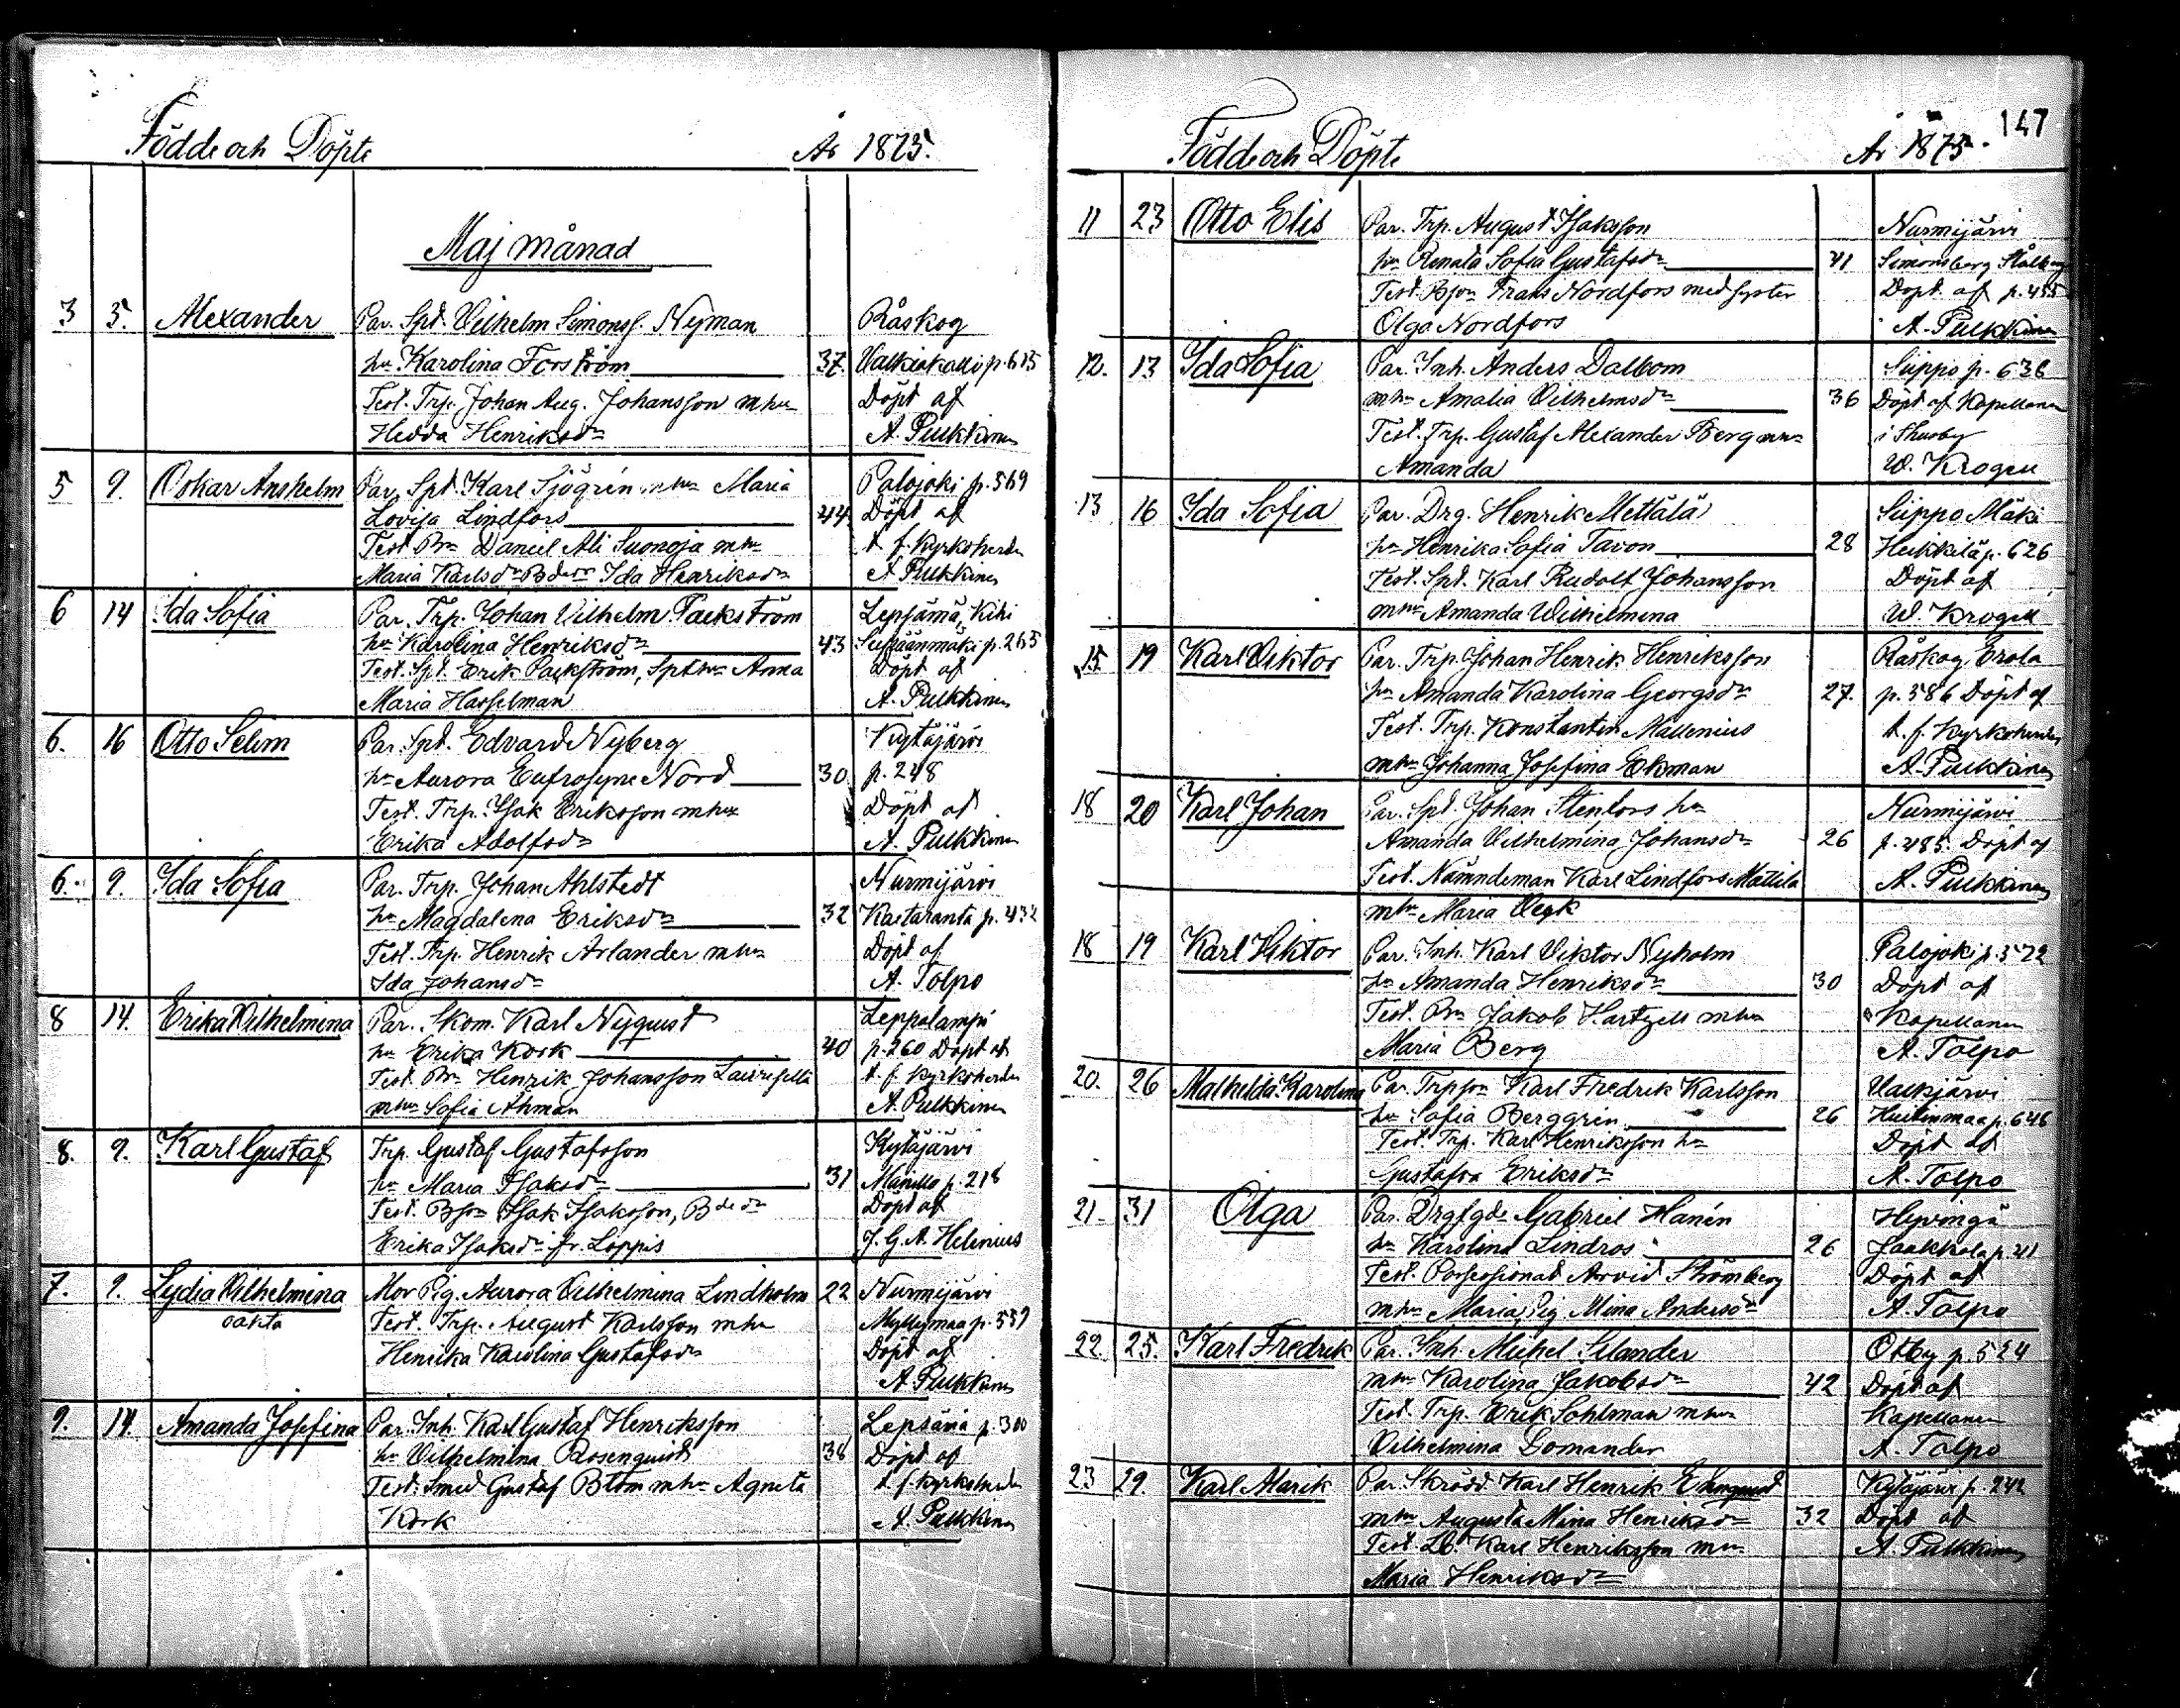 Födde och Döpte År 1875.
Maj månad
3 5. Alexander Par. Spt. Vilhelm Simonsf. Nyman Råskog
hu Karolina Forström 37. Valkiakallio p. 615
Test. Trp. Johan Aug. Johansson mhu Döpt af
Hedda Henriksdr A. Pulkkinen
5 9. Oskar Anshelm Par. Spt. Karl Sjögrén mhu Maria Palojoki p. 569
Lovisa Lindfors 44 Döpt af
Test Bn Daniel Ali Suonoja mhu t. f. Kyrkoherden
Maria Karlsdr Bdedr Ida Henriksdr A. Pulkkinen
6 14 Ida Sofia Par. Trp. Johan Vilhelm Packström Lepsämä, Kihi
hu Karolina Henriksdr 43 p. 265
Test. Spt. Erik Packström, Spt.hu Anna Döpt af
Maria Hasselman A. Pulkkinen
6. 16 Otto Selim Par. Spt. Edvard Nyberg Kytäjärvi
hu Aurora Eufrosyne Nord 30 p. 248
Test. Trp. Isak Eriksson mhu Döpt af
Erika Adolfsdr A. Pulkkinen
6. 9. Ida Sofia Par. Trp. Johan Ahlstedt Nurmijärvi
hu Magdalena Eriksdr 32 Kartaranta p. 432
Test. Trp. Henrik Arlander mhu Döpt af
Ida Johansdr A. Tolpo
8 14. Erika Vilhelmina Par. Skom. Karl Nyquist Leppalampi
hu Erika Kork 40 p. 260 Döpt af
Test. Bn Henrik Johansson t. f. Kyrkoherden
mhu Sofia Åhman A. Pulkkinen
8. 9. Karl Gustaf Trp. Gustaf Gustafsson Kytäjärvi
hu Maria Isaksdr 31 Manilla p. 218
Test. Bson Isak Isaksson, Bdedr Döpt af
Erika Isaksdr fr. Loppis J. G. A. Helenius
7. 9. Lydia Vilhelmina Mor Pig. Aurora Vilhelmina Lindholm 22 Nurmijärvi
oäkta Test. Trp. August Karlsson mhu Myllymaa p. 559
Henrika Karolina Gustafsdr Döpt af
A. Pulkkinen
9. 14 Amanda Josefina Par. Inh. Karl Gustaf Henriksson Lepsämä p. 300
hu Vilhelmina Rosenquist 38 Döpt af
Test. Smed Gustaf Blom mhu Agneta t. f. Kyrkoherden
Kork A. Pulkkinen
147
Födde och Döpte År 1875.
11 23 Otto Elis Par. Trp. August Isaksson Nurmijärvi
hu Renata Sofia Gustafsdr 41 Simonsberg Stålberg
Test. Bson Frans Nordfors med syster Döpt af p. 455
Olga Nordfors A. Pulkkinen
12. 13 Ida Sofia Par. Inh. Anders Dalbom Siippo p. 636
mhu Amalia Vilhelmsdr 36 Döpt af Kapellanen
Test. Trp. Gustaf Alexander Berg mhu i Thusby
Amanda W. Krogell
13 16 Ida Sofia Par. Drg. Henrik Mettälä Siippo Mäki
hu Henrika Sofia Tavon 28 Heikkilä p. 626
Test. Spt. Karl Rudolf Johansson Döpt af
mhu Amanda Wilhelmina W. Krogell
15 19 Karl Viktor Par. Trp. Johan Henrik Henriksson Råskog Erola
hu Amanda Karolina Georgsdr 27. p. 586 Döpt af
Test. Trp. Konstantin Mallenius t. f. Kyrkoherden
mhu Johanna Josefina Ekman A. Pulkkinen
18 20 Karl Johan Par. Spt. Johan Stenfors hu Nurmijärvi
Amanda Vilhelmina Johansdr 26 p. 485. Döpt af
Test. Nämndeman Karl Lindfors Mattila A. Pulkkinen
mhu Maria Wegk
18 19 Karl Viktor Par. Inh. Karl Viktor Nyholm Palojoki p. 572
hu Amanda Henriksdr 30 Döpt af
Test. Bn Jakob Hartzell mhu Kapellanen
Maria Berg A. Tolpo
20. 26 Mathilda Karolina Par. Trpson Karl Fredrik Karlsson Valkjärvi
hu Sofia Berggrén 26 p. 646
Test. Trp. Karl Henriksson hu Döpt af
Gustafva Eriksdr A. Tolpo
21. 31 Olga Par. Drgfgde Gabriel Hanén Hyvingä
hu Karolina Lindros 26 Jaakkola p. 211
Test. Possessionat Arvid Strömberg Döpt af
mhu Maria, Pig. Mina Andersdr A. Tolpo
22. 25. Karl Fredrik Par. Inh. Mickel Selander Otby p. 524
mhu Karolina Jakobsdr 42 Döpt af
Test. Trp. Erik Sohlman mhu Kapellanen
Vilhelmina Gomander A. Tolpo
23 29. Karl Alarik Par. Skrädd. Karl Henrik Kytäjärvi p. 242
mhu Augusta Mina Henriksdr 32 Döpt af
Test. Karl Henriksson mhu A. Pulkkinen
Maria Henriksdr